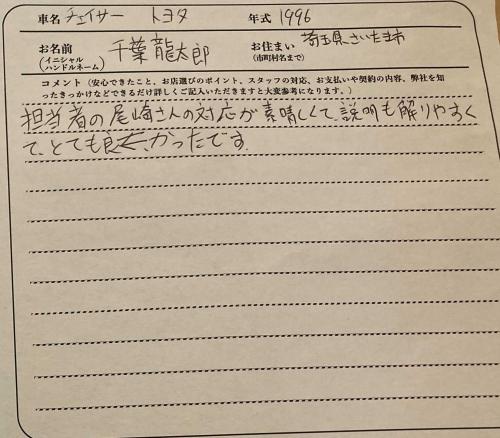 車名 チェイサー トヨタ 年式 1996
お名前 千葉 龍太郎 お住まい 埼玉県さいたま市
(イニシャル
ハンドルネーム) (市町村名まで)
コメント (安心できたこと、お店選びのポイント、スタッフの対応、お支払いや契約の内容、弊社を知
ったきっかけなどできるだけ詳しくご記入いただきますと大変参考になります。)
担当者の尾崎さんの対応が素晴しくて、説明も解りやすく
て、とても良かったです。